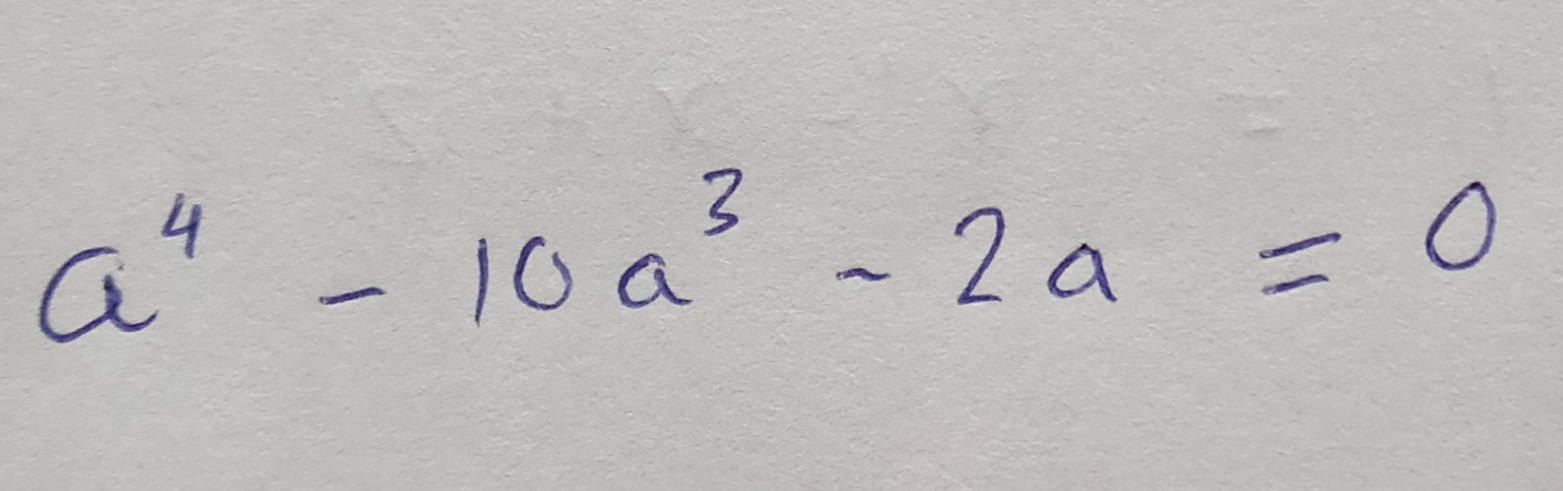 a⁴ - 10a³ - 2a = 0